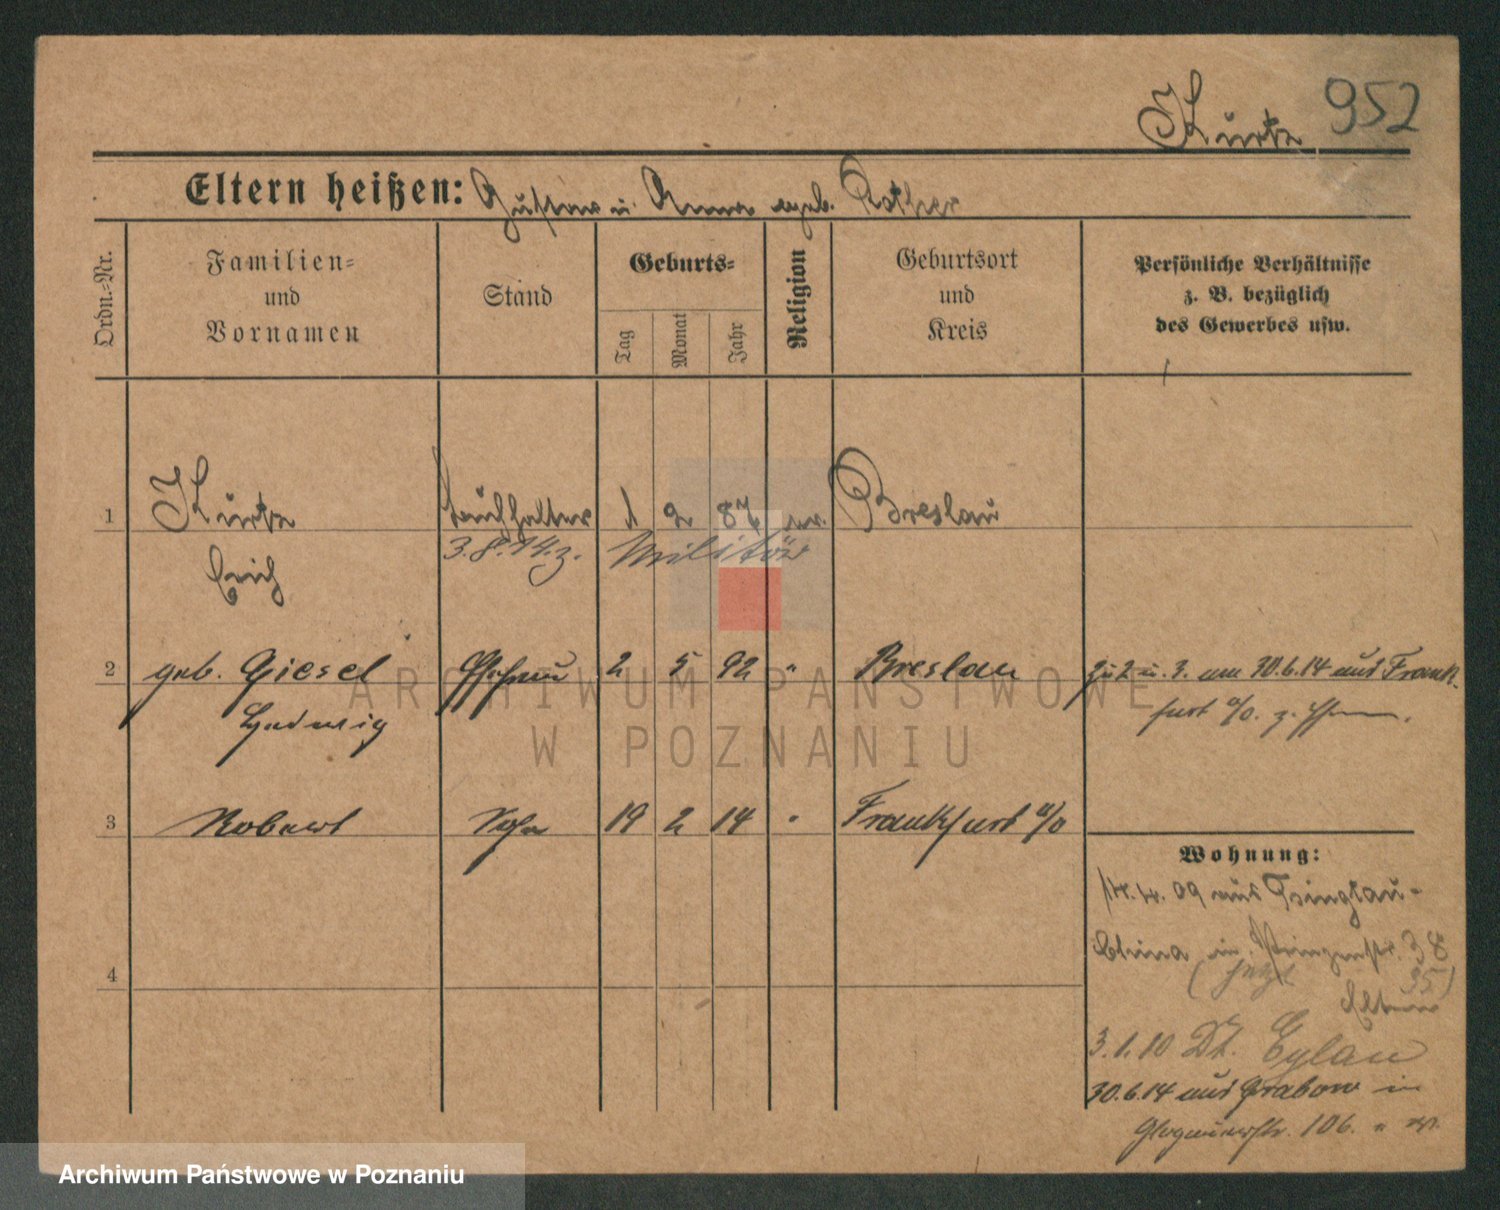 Kurtz 952
Eltern heißen: Gustav u. Anna geb. Rother
Ordn.-Nr.
Familien-
und
Vornamen
Stand
Geburts-
Tag
Monat
Jahr
Religion
Geburtsort
und
Kreis
Persönliche Verhältnisse
z. B. bezüglich
des Gewerbes usw.
1 Kurtz Buchhalter 1 9 87 ev. Breslau
3.8.14.z. Militär
Erich
2 geb. Giesel Ehefrau 2 5 92 " Breslau zu 2 u. 3. am 30.6.14 aus Frank-
Hedwig furt a/O. z.
3 Robert Sohn 19 2 14 " Frankfurt a/O
Wohnung:
09 aus Tsingtau-
China in Prinzenstr. 38
(jetzt 35)
Eltern
4
3.1.10 Dt. Eylau
30.6.14 aus Grabow in
Glogauerstr. 106.
ARCHIWUM PAŃSTWOWE
W POZNANIU
Archiwum Państwowe w Poznaniu